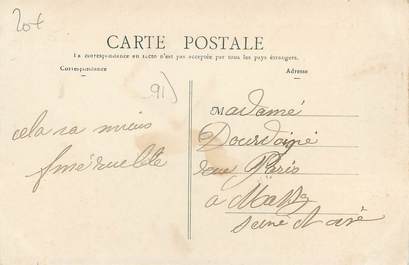 20€
CARTE POSTALE
La correspondance au recto n'est pas acceptée par tous les pays étrangers.
Correspondance
Adresse
91)
cela va mieux
Madame
rue Paris
à
Seine et